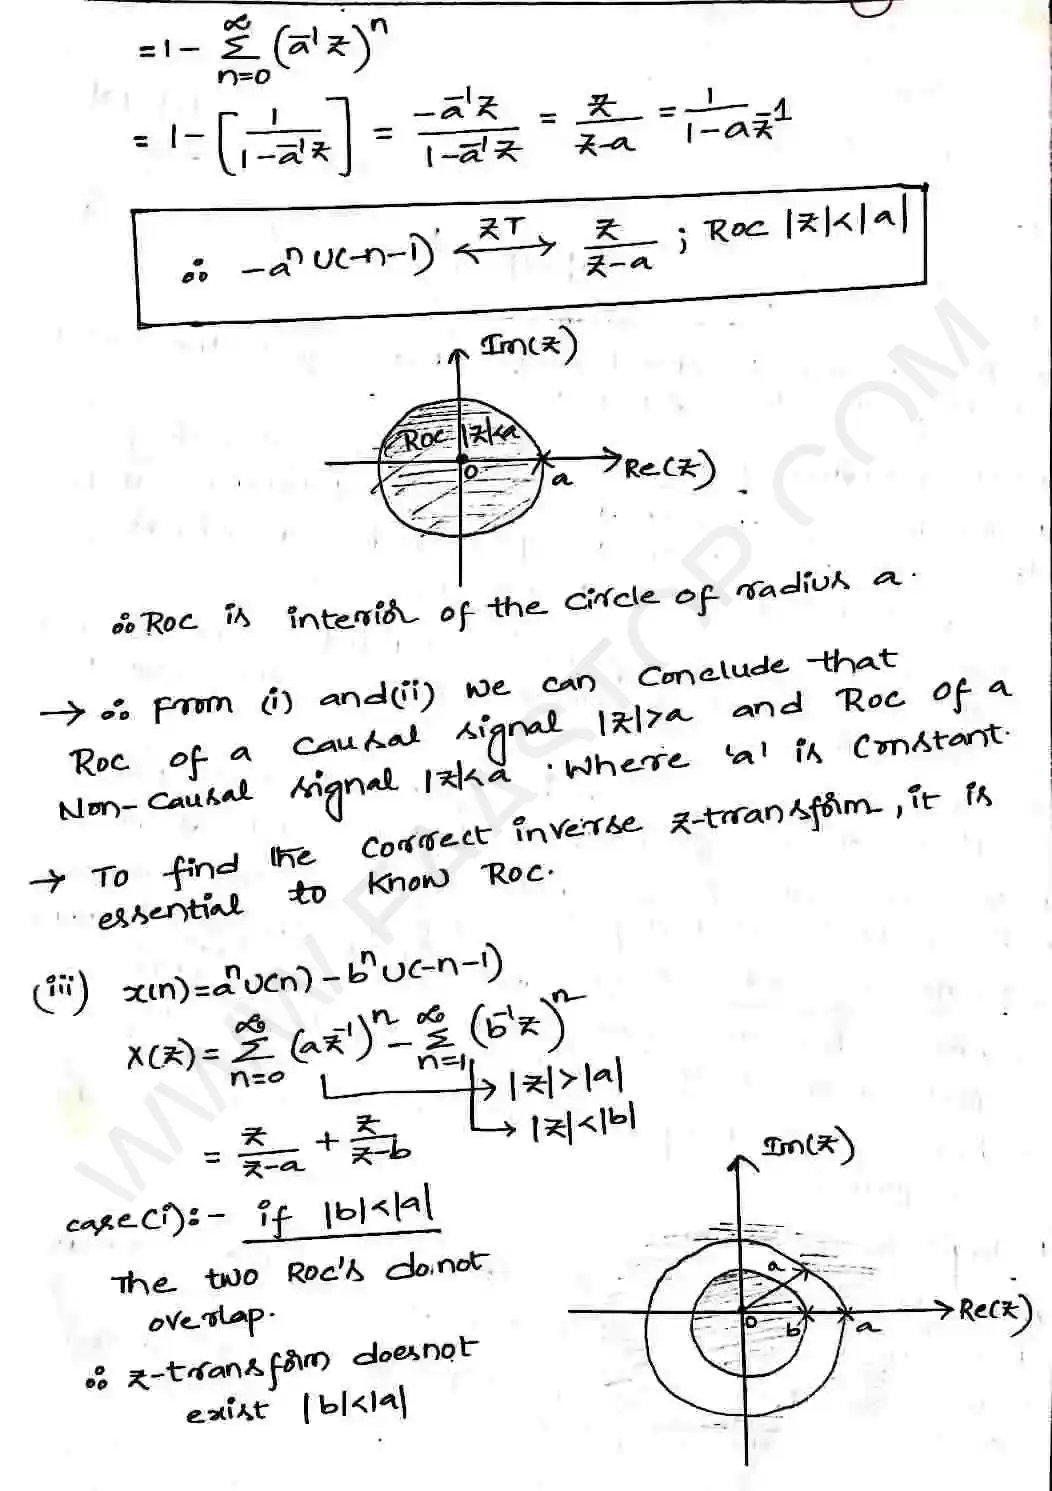 = 1 - ∞Σn=0 (a⁻¹z)ⁿ
= 1 - [1/(1-a⁻¹z)] = -a⁻¹z/(1-a⁻¹z) = z/(z-a) = 1/(1-az⁻¹)
∴ -aⁿ u(-n-1) ⟷ZT z/(z-a) ; ROC |z|<|a|
Im(z)
ROC |z|<a
0
a
Re(z)
∴ ROC is interior of the circle of radius a.
→ ∴ From (i) and (ii) we can conclude that
ROC of a causal signal |z|>a and ROC of a
Non-causal signal |z|<a. Where 'a' is constant.
→ To find the correct inverse z-transform, it is
essential to know ROC.
(iii) x(n)=aⁿu(n)-bⁿu(-n-1)
X(z) = ∞Σn=0 (az⁻¹)ⁿ - ∞Σn=1 (b⁻¹z)ⁿ
→ |z|>|a|
→ |z|<|b|
= z/(z-a) + z/(z-b)
case(i):- if |b|<|a|
The two ROC's do.not
overlap.
∴ z-transform doesnot
exist |b|<|a|
Im(z)
a
0
b
a
Re(z)
WWW.FAASTOP.COM